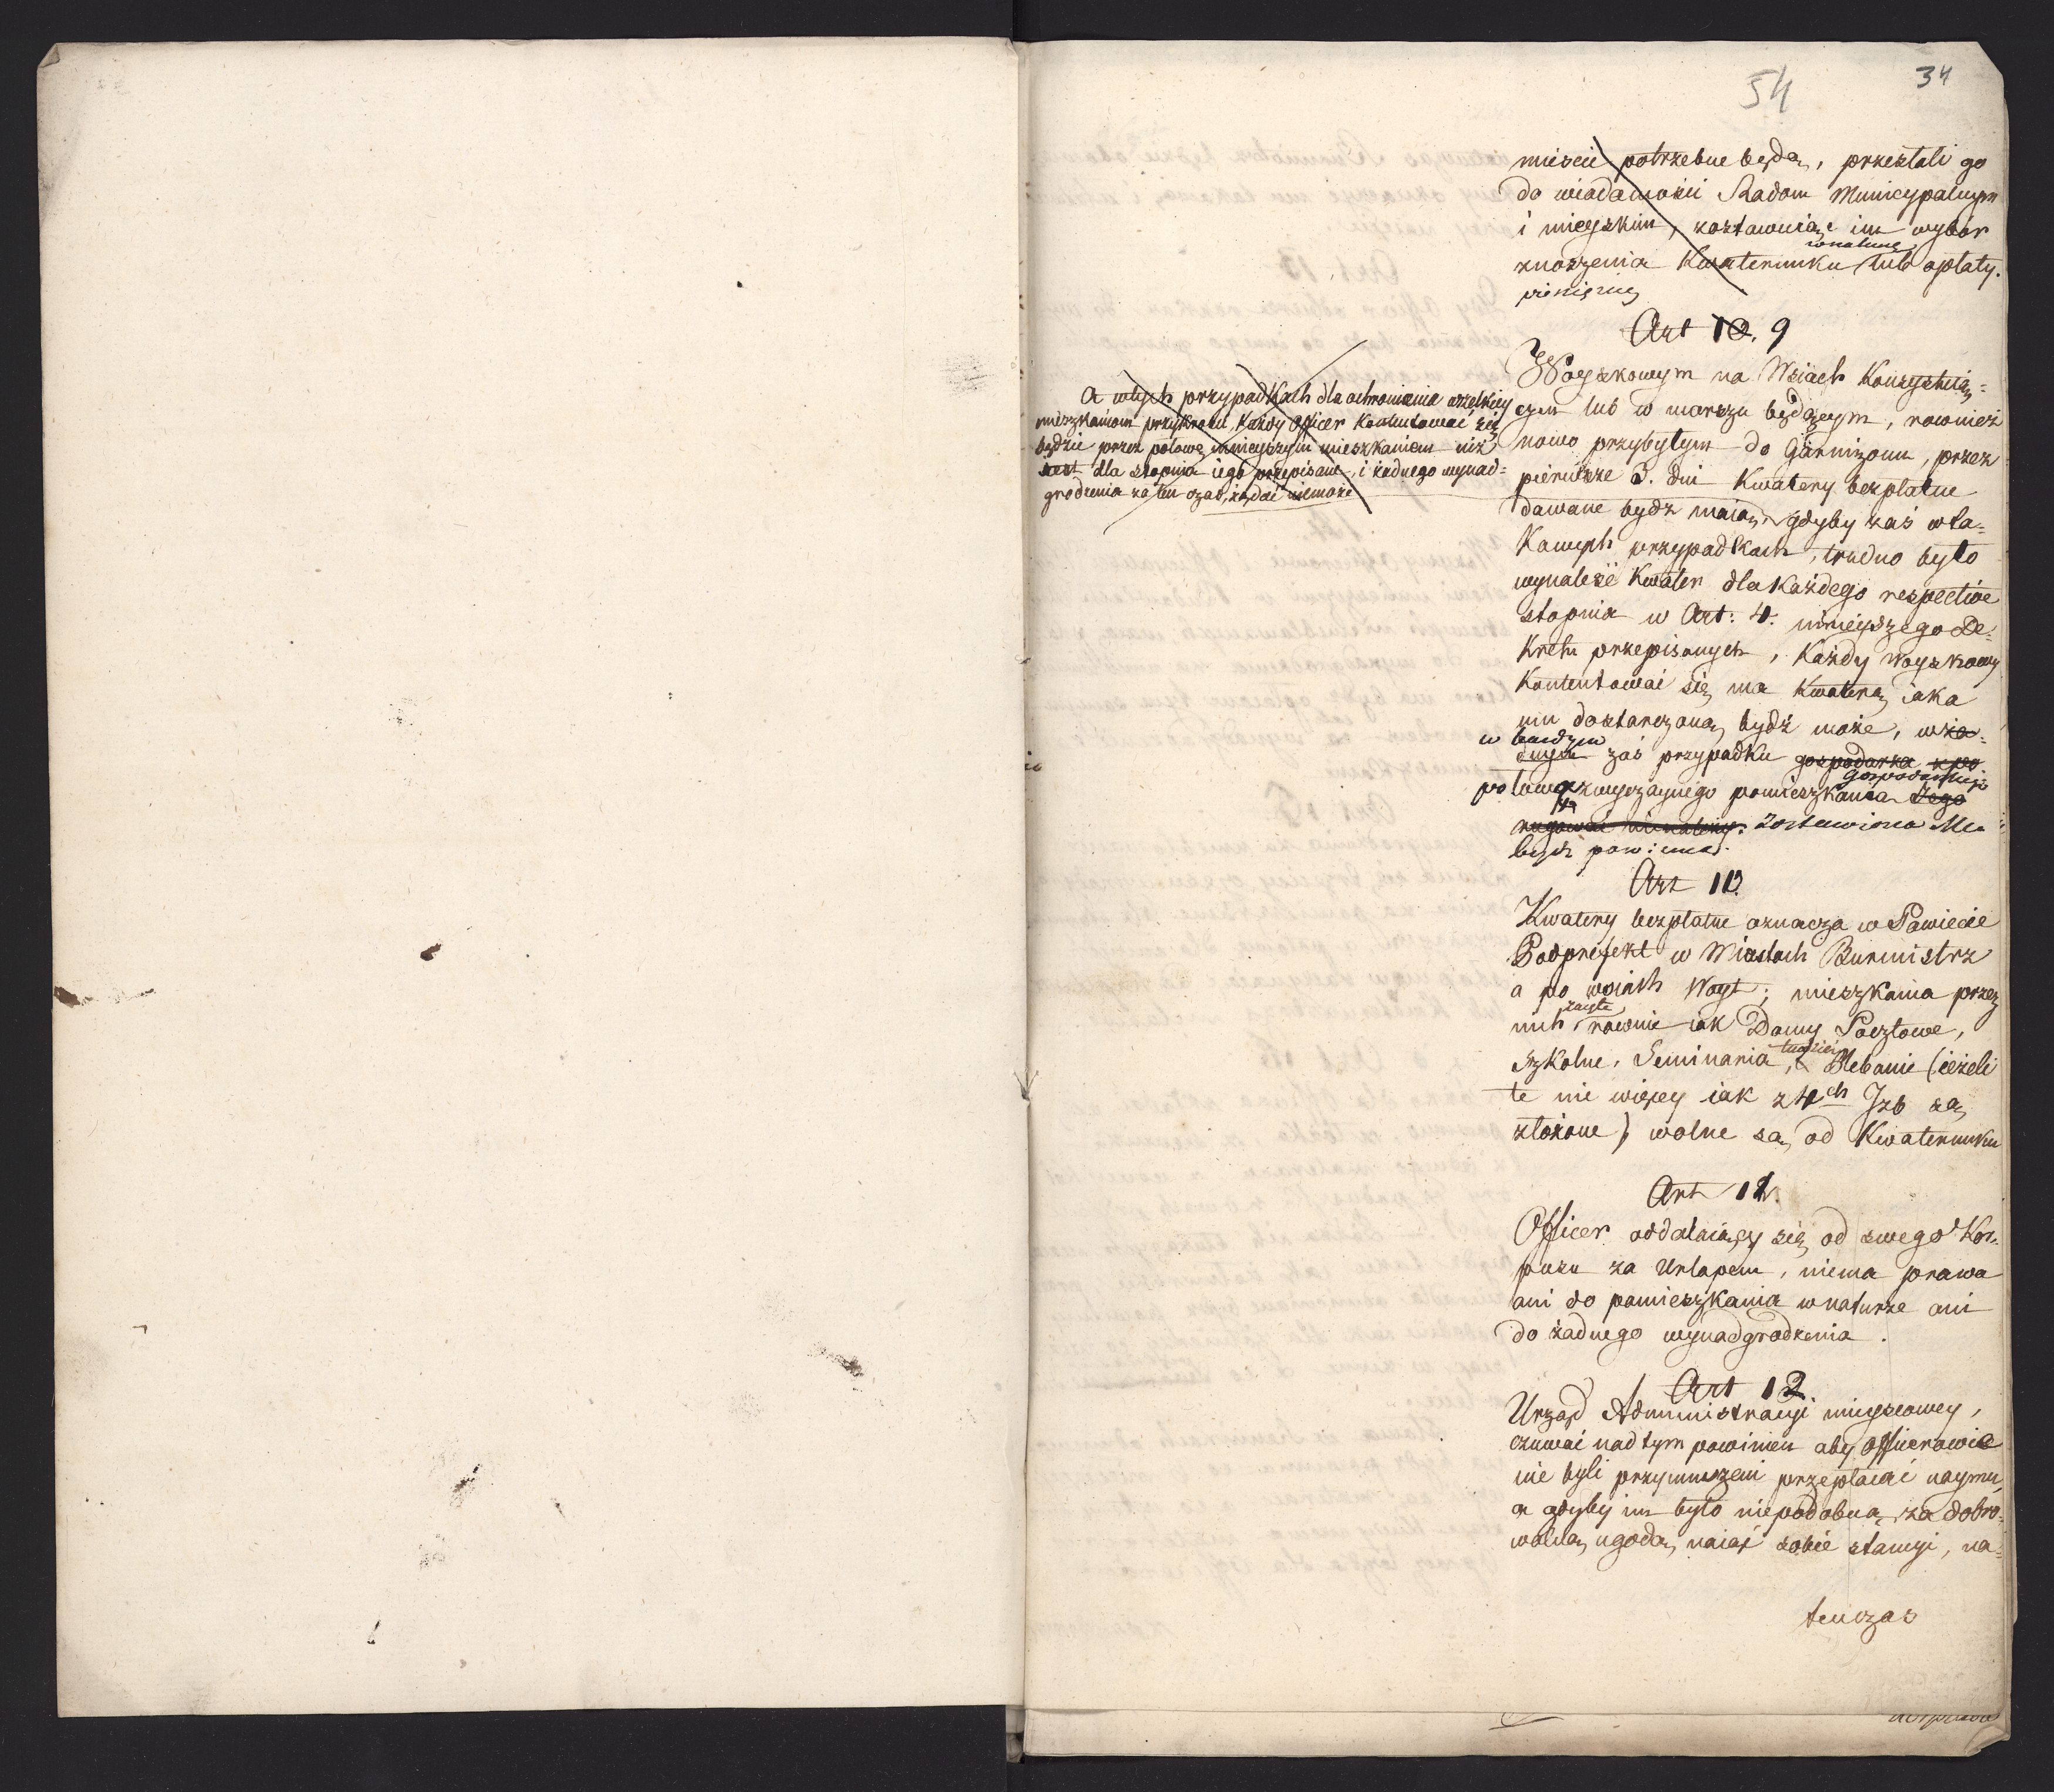 54
34
mieście potrzebne będą, przesłali go
do wiadomości Radom Municypalnym
i mieyskim, zostawuiąc im wybór
wnaturze
znoszenia Kwaterunku lub opłaty
pieniężney
Art 10. 9
Woyskowym na Wsiach Konsystuią=
cym lub w marszu będącym, rownież
nowo przybyłym do Garnizonu, przez
pierwsze 3. dni Kwatery bezpłatne
dawane bydz maią, gdyby zaś wta=
Kowych przypadkach, trudno było
wynaleść Kwater dla Każdego respective
stopnia w Art: 4. ninieyszego De=
Kretu przepisanych, Każdy Woyskowy
Kontentować się ma Kwaterą iaka
mu dostarczoną bydź może, wża=
w każdym
dnym zaś przypadku gospodarza z po
gospodarzowi
połowa zwyczaynego pomieszkania Jego
rugować nienależy. zostawiona
bydz powinna.
A wtych przypadkach dla ochronienia wszelkiey
mieszkańcom przykrości, Każdy Officer Kontentować się
będzie przez połowę mnieyszym mieszkaniem niż
iest dla stopnia iego przepisane, i żadnego wynad=
grodzenia za ten czas, żądać niemoże
Art 10.
Kwatery bezpłatne oznacza w Powiecie
Podprefekt w Miastach Burmistrz
a po wsiach Woyt; mieszkania przez
zaięte
nich rownie iak Domy Pocztowe,
tudzież
Szkolne, Seminaria, Plebanie (ieżeli
te nie więcey iak z 4ch Izb są
złożone) wolne są od Kwaterunku
Art 11.
Officer oddalaiący się od swego Kor=
pusu za Urlopem, niema prawa
ani do pomieszkania wnaturze ani
do żadnego wynadgrodzenia.
Art 12.
Urząd Administracyi mieyscowey,
czuwać nad tym powinien aby Officerowie
nie byli przymuszeni przepłacać naymu,
a gdyby im było niepodobna, za dobro=
wolną ugodą naiąć sobie stancyi, na=
tenczas